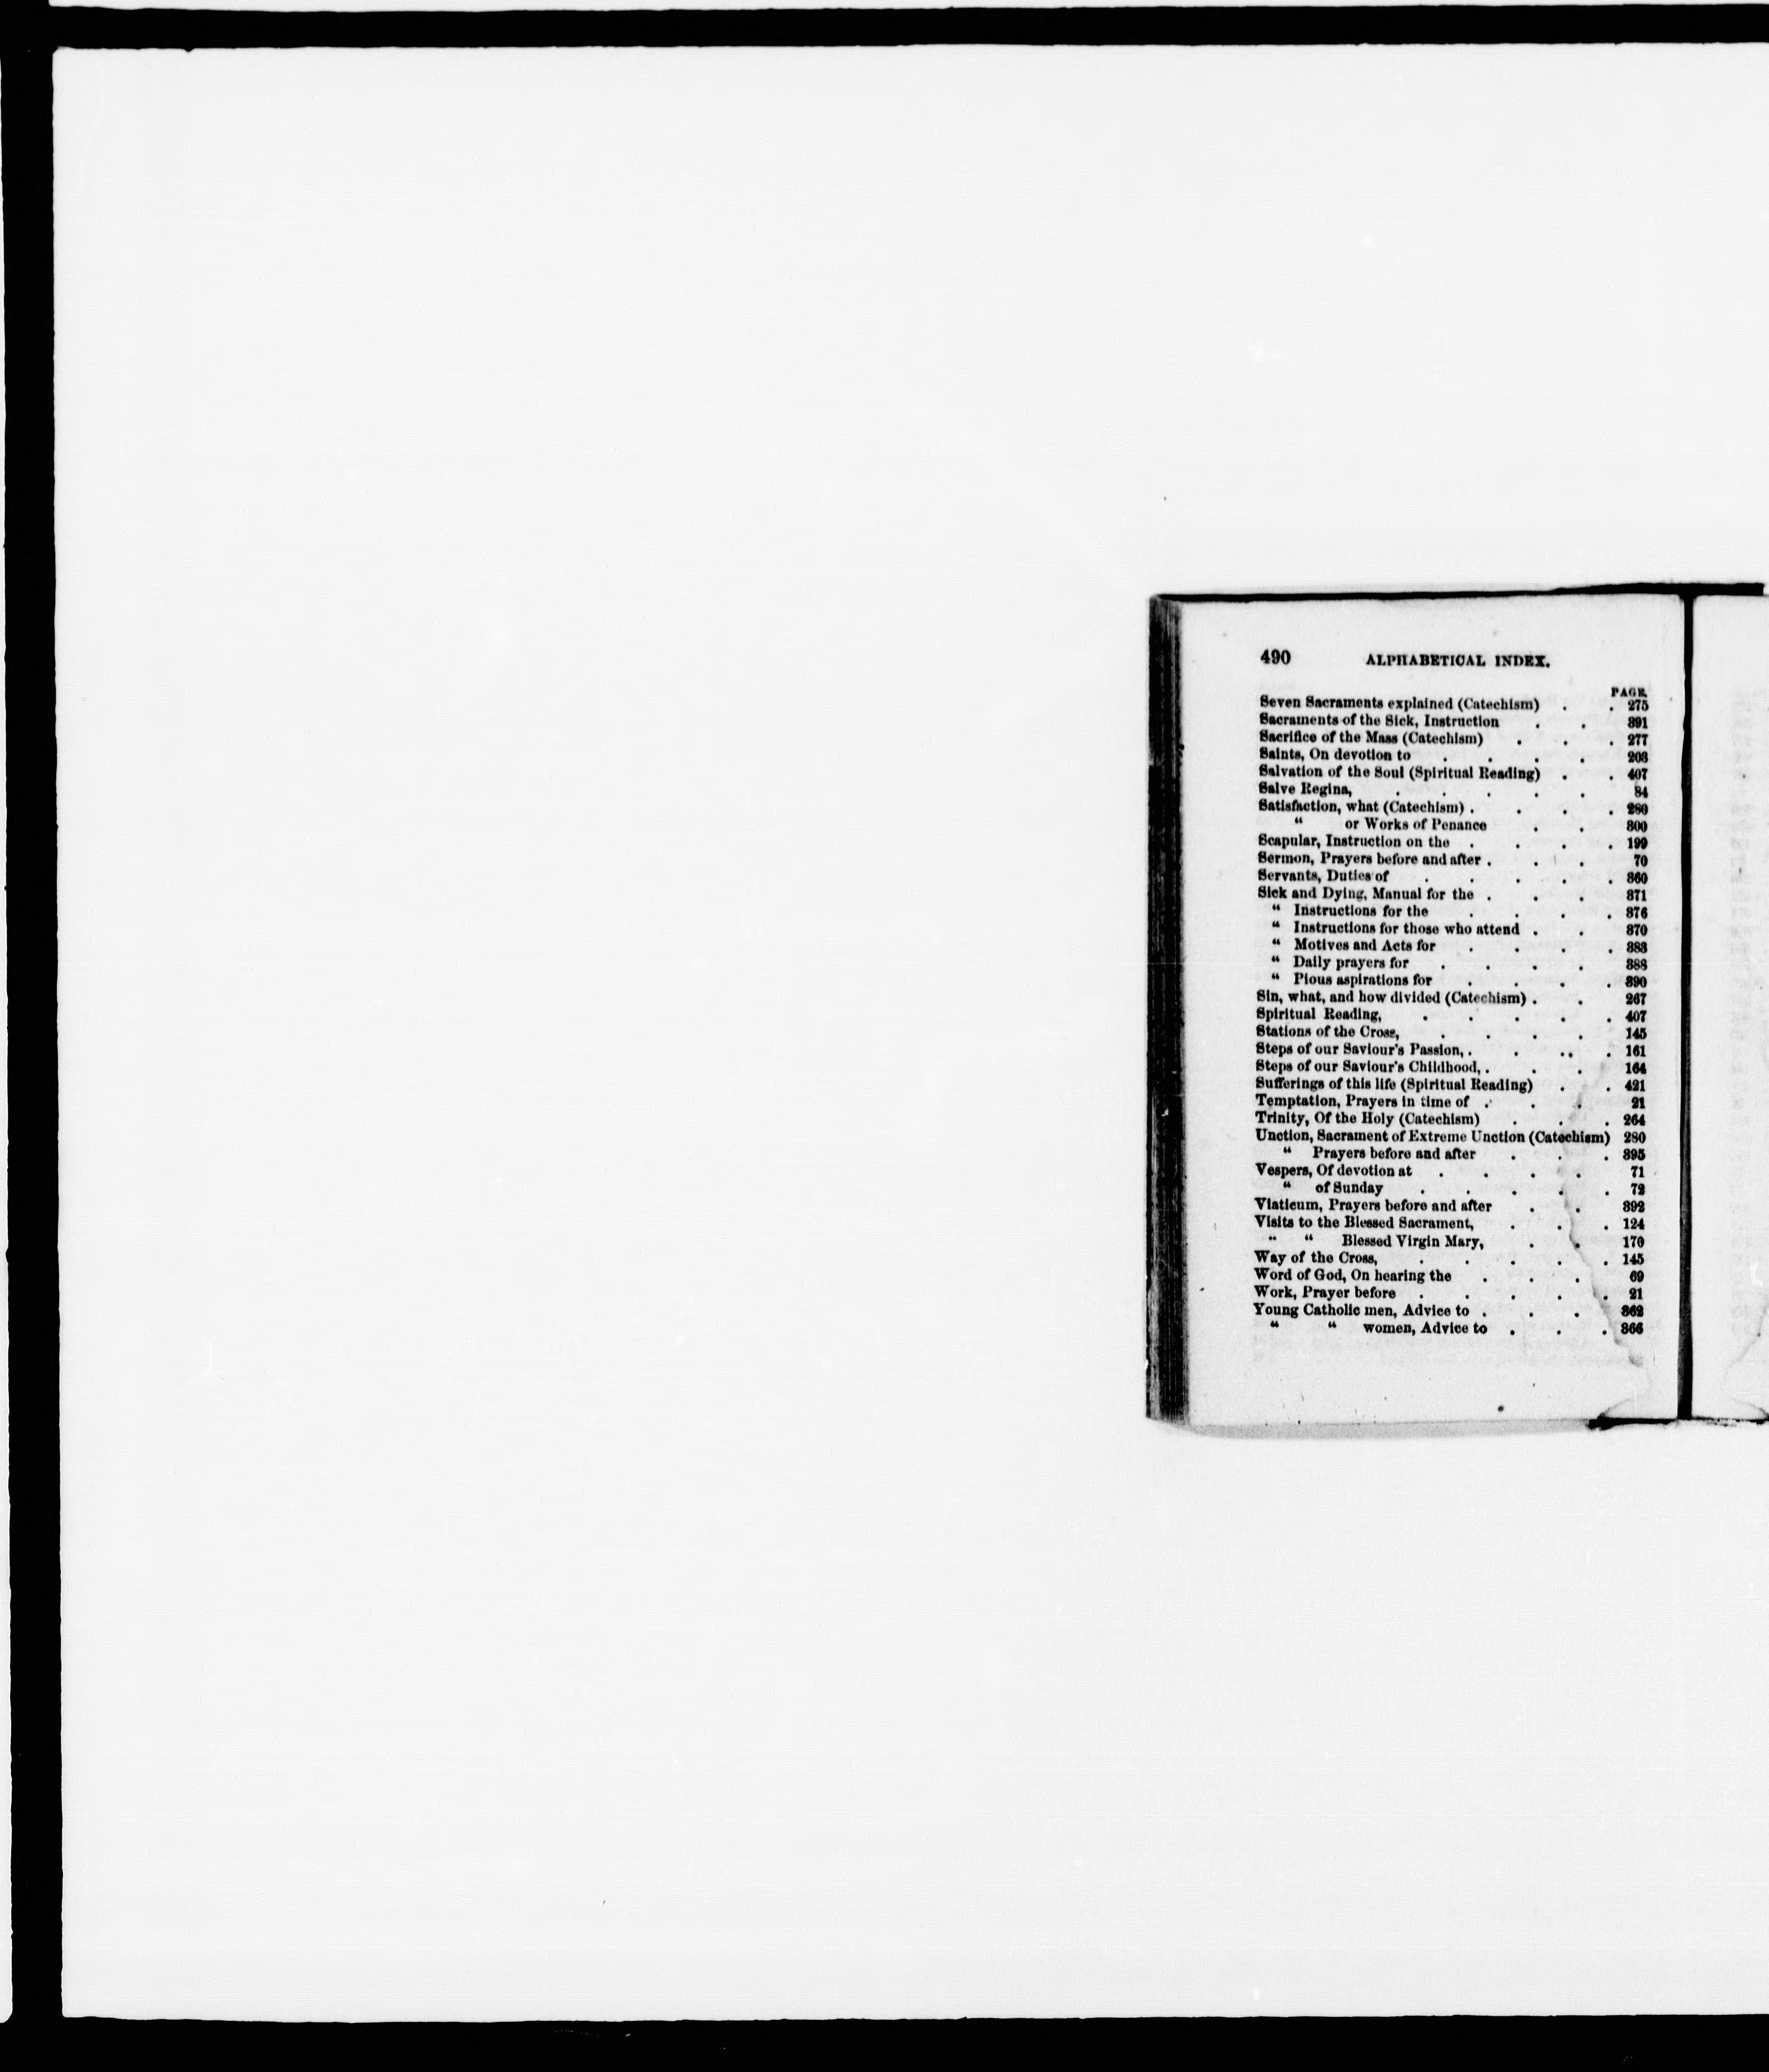 490 ALPHABETICAL INDEX.
PAGE.
Seven Sacraments explained (Catechism) . . 275
Sacraments of the Sick, Instruction . . 391
Sacrifice of the Mass (Catechism) . . . 277
Saints, On devotion to . . . . 203
Salvation of the Soul (Spiritual Reading) . . 407
Salve Regina, . . . . . 84
Satisfaction, what (Catechism) . . . . 280
“ or Works of Penance . . 300
Scapular, Instruction on the . . . . 199
Sermon, Prayers before and after . . . 70
Servants, Duties of . . . . . 360
Sick and Dying, Manual for the . . . 371
“ Instructions for the . . . . 376
“ Instructions for those who attend . . 370
“ Motives and Acts for . . . . 383
“ Daily prayers for . . . . 388
“ Pious aspirations for . . . . 390
Sin, what, and how divided (Catechism) . . 267
Spiritual Reading, . . . . . 407
Stations of the Cross, . . . . 145
Steps of our Saviour's Passion, . . . . 161
Steps of our Saviour's Childhood, . . . 164
Sufferings of this life (Spiritual Reading) . . 421
Temptation, Prayers in time of . . . 21
Trinity, Of the Holy (Catechism) . . . 264
Unction, Sacrament of Extreme Unction (Catechism) 280
“ Prayers before and after . . . 395
Vespers, Of devotion at . . . . 71
“ of Sunday . . . . . 72
Viaticum, Prayers before and after . . 392
Visits to the Blessed Sacrament, . . . 124
“ “ Blessed Virgin Mary, . . 170
Way of the Cross, . . . . . 145
Word of God, On hearing the . . . 69
Work, Prayer before . . . . . 21
Young Catholic men, Advice to . . . 362
“ “ women, Advice to . . . 366